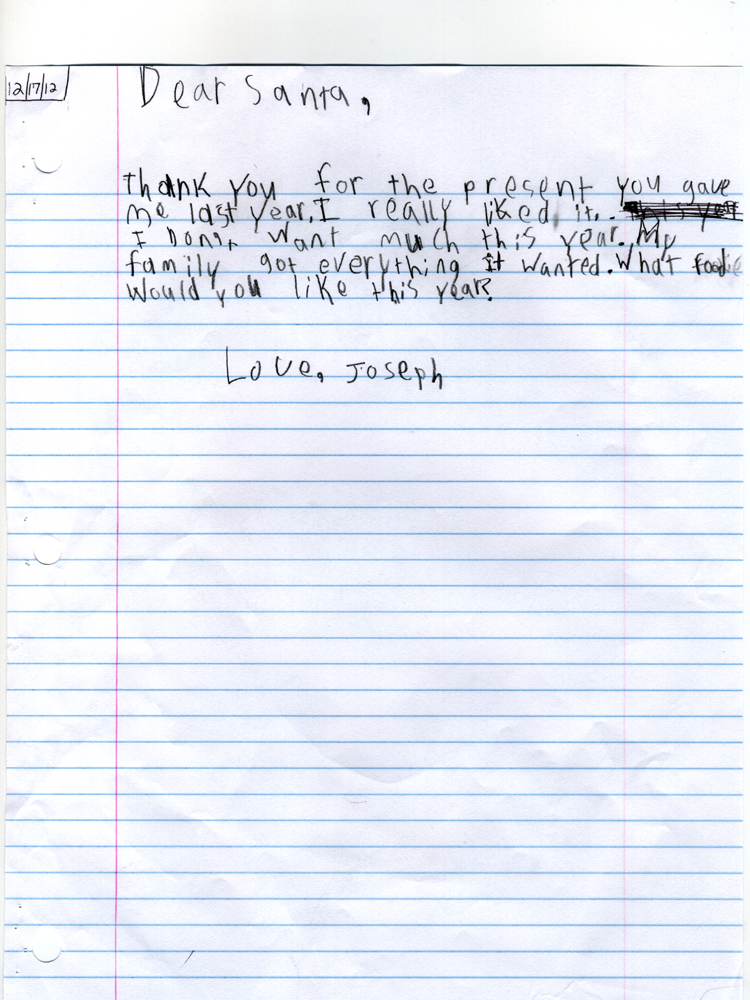 12/17/12
Dear Santa,
Thank you for the present you gave
me last year. I really liked it.
I Don't want much this year. My
family got everything it wanted. What
would you like this year?
Love, Joseph